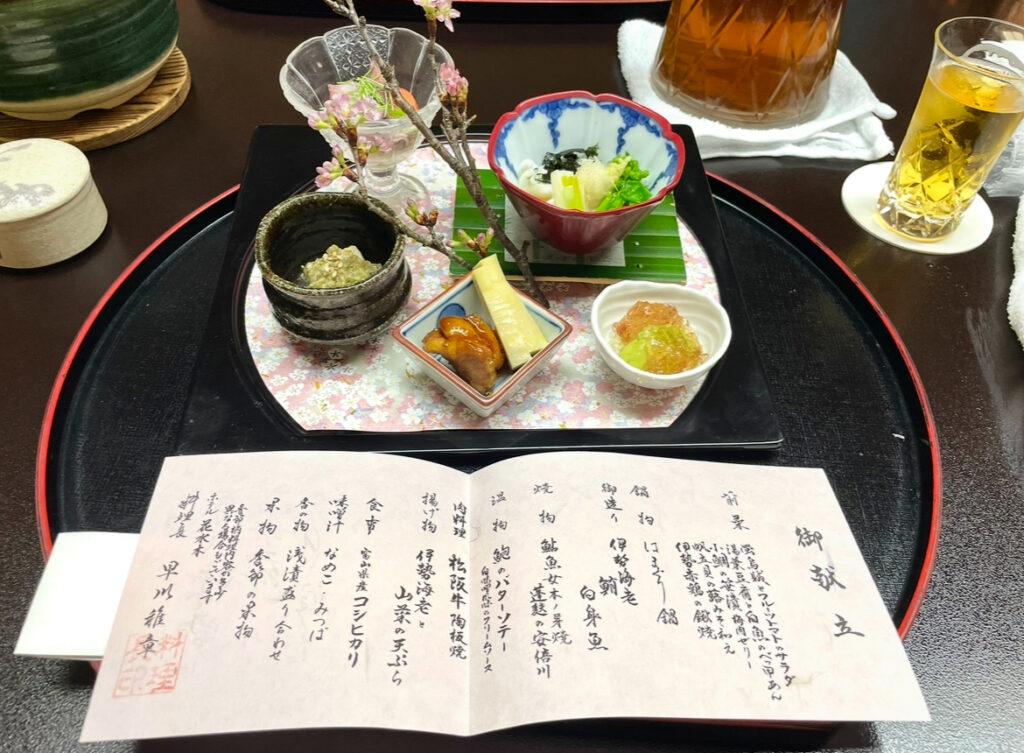 御献立
前菜
蛍烏賊とフルーツトマトのサラダ
湯葉豆腐と白魚のべっ甲あん
小鯛の笹漬 梅肉ゼリー
帆立貝の蕗みそ和え
伊勢赤鶏の鍬焼
鍋物 はまぐり鍋
御造り 伊勢海老
鰆
白身魚
焼物 鮎魚女木ノ芽焼
蓬麩の安倍川
温物 鮑のバターソテー
クリームソース
肉料理 松阪牛陶板焼
揚げ物 伊勢海老と
山菜の天ぷら
食事 富山県産コシヒカリ
味噌汁 なめこ・みつば
香の物 浅漬盛り合わせ
果物 春節の果物
異なる場合もございます
ホテル 花水木
料理長 早川雅章